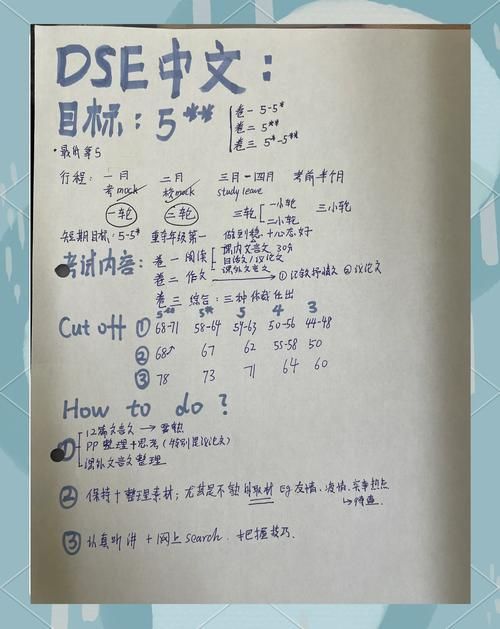 DSE 中文：
目标：5** 卷一 5-5*
卷二 5**
卷三 5*-5**
·最低第5
行程： 一月 二月 三月-四月 考前半个月
考mock 校mock study leave
一轮 二轮 三轮 一小轮 二小轮 三小轮
短期目标：5-5* 重夺年级第一 做到稳+心态好
考试内容： 卷一 阅读 课内文言文 30分
白话文/议论文
课外文言文
卷二 作文 → ① 记叙抒情文 ② 议论文
卷三 综合：三种体裁
5** 5* 5 4 3
Cut off ① 68-71 58-64 54-63 50-56 44-48
② 68↑ 67 62 55-58 50
③ 78 73 71 64 60
How to do ?
① 12篇文言文 → 要熟
PP 整理+思考(特别是议论文)
课外文言文整理
② 保持+整理素材；尤其是不熟的取材 Eg 友情、爱情、实事热点
↳待选
③ 认真听讲 + 网上 search. 把握技巧.